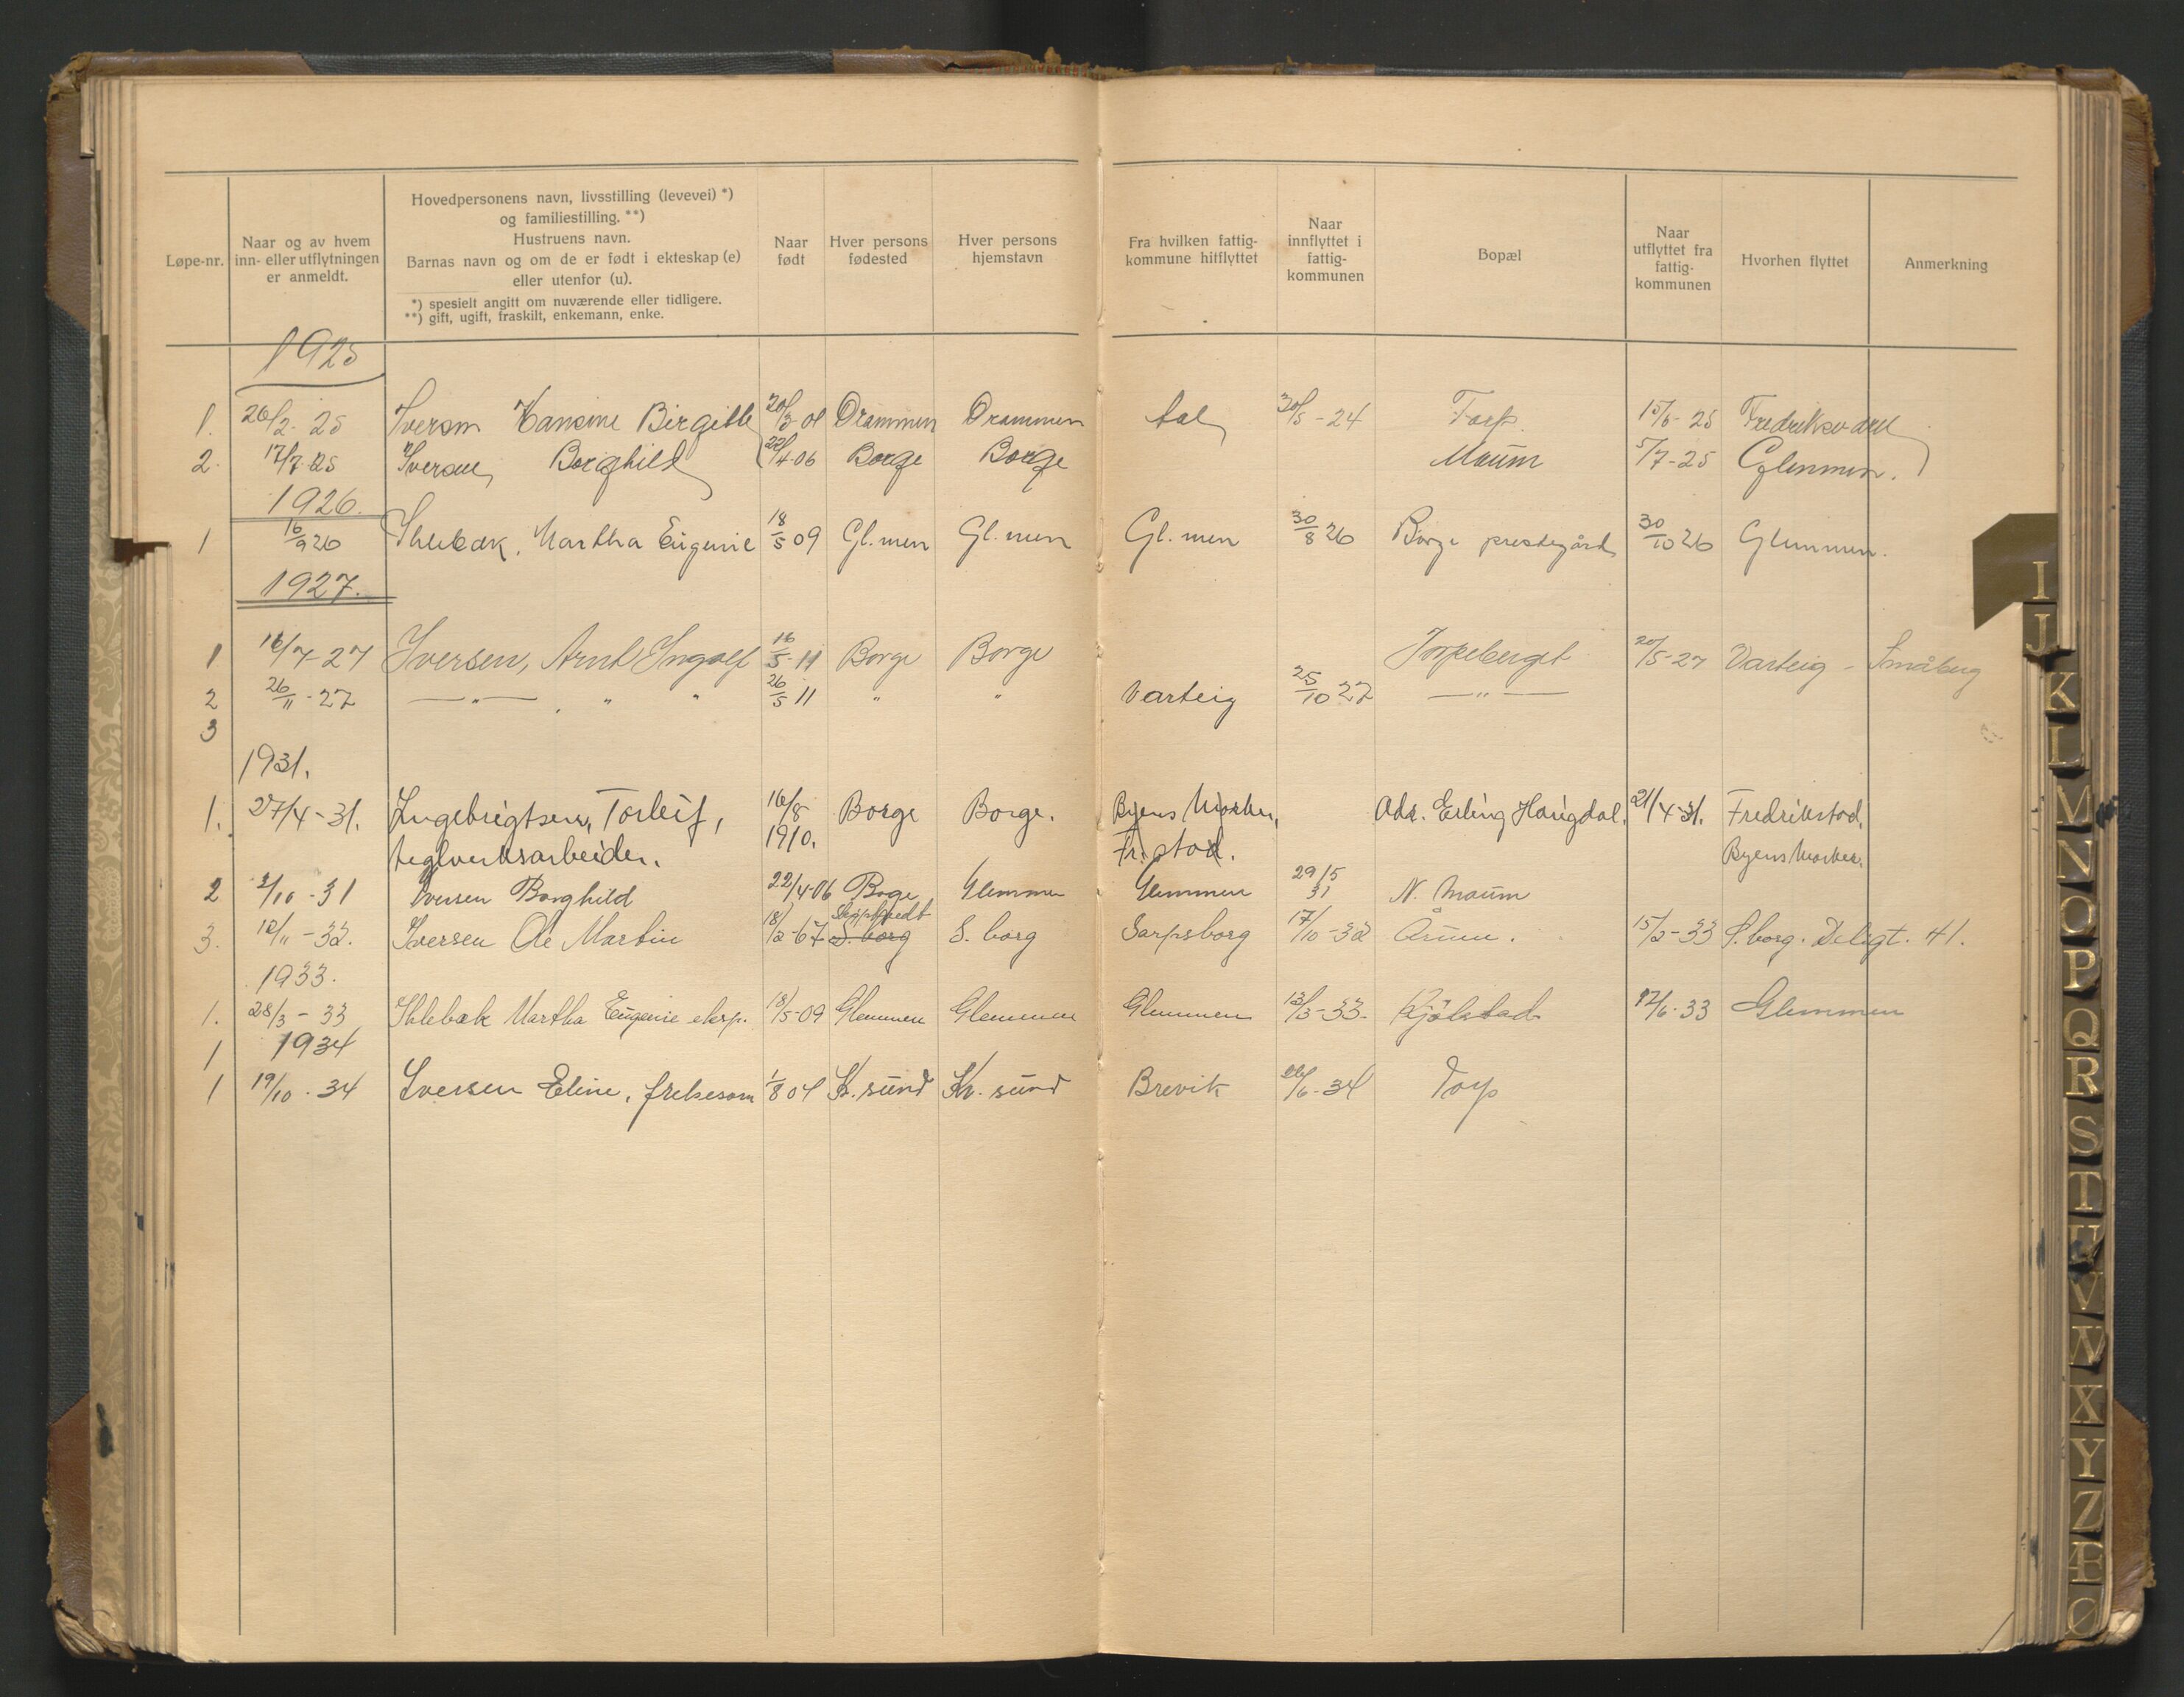 Løpe-nr. | Naar og av hvem inn- eller utflytningen er anmeldt. | Hovedpersonens navn, livsstilling (levevei) *) og familiestilling. **) Hustruens navn. Barnas navn og om de er født i ekteskap (e) eller utenfor (u). *) spesielt angitt om nuværende eller tidligere. **) gift, ugift, fraskilt, enkemann, enke. | Naar født | Hver persons fødested | Hver persons hjemstavn | Fra hvilken fattig-kommune hitflyttet | Naar innflyttet i fattig-kommunen | Bopæl | Naar utflyttet fra fattig-kommunen | Hvorhen flyttet | Anmerkning
1925
1. 26/2-25 Iversen Hansine Birgitte 20/3-01 Drammen Drammen Aal 30/5-24 Torp 15/6-25 Fredriksværd
2. 17/7-25 Iversen, Borghild 22/4-06 Borge Borge Maum 5/7-25 Glemmen.
1926.
1 16/9 26 Ihlebæk, Martha Eugenie 18/5 09 Gl.men Gl.men Gl.men 30/8 26 Borge prestegård 30/10 26 Glemmen.
1927.
1 16/7-27 Iversen, Arnt Ingolf 16/5-11 Borge Borge Torpeberget 20/5-27 Varteig - Småberg
2 26/11-27 — " — " " 26/5 11 " " Varteig 25/10 27 — " —
3
1931.
1. 27/4-31. Ingebrigtsen, Torleif, 16/8 Borge Borge. Byens Marker, Adr. Erling Haugdal. 21/4-31. Fredrikstad,
teglverksarbeider. 1910. Fr.stad. Byens Marker.
2 2/10-31 Iversen Borghild 22/4-06 Borge Glemmen Glemmen 29/5 31 N. Maum
3. 12/11-32. Iversen Ole Martin 18/2-67 S. borg S. borg Sarpsborg 17/10-32 Årum. 15/2-33 S.borg. Deligt. 41.
1933.
1. 28/3-33 Ihlebæk Martha Eugenie eksp. 18/5-09 Glemmen Glemmen Glemmen 13/3-33. Kjølstad 17/6-33 Glemmen
1 1934
1 19/10-34 Iversen Eline, frelsesom 1/8 04 Kr.sund Kr.sund Brevik 22/6-34 Torp
I
J
K
L
M
N
O
P
Q
R
S
T
U
V
W
X
Y
Z
Æ
Ø